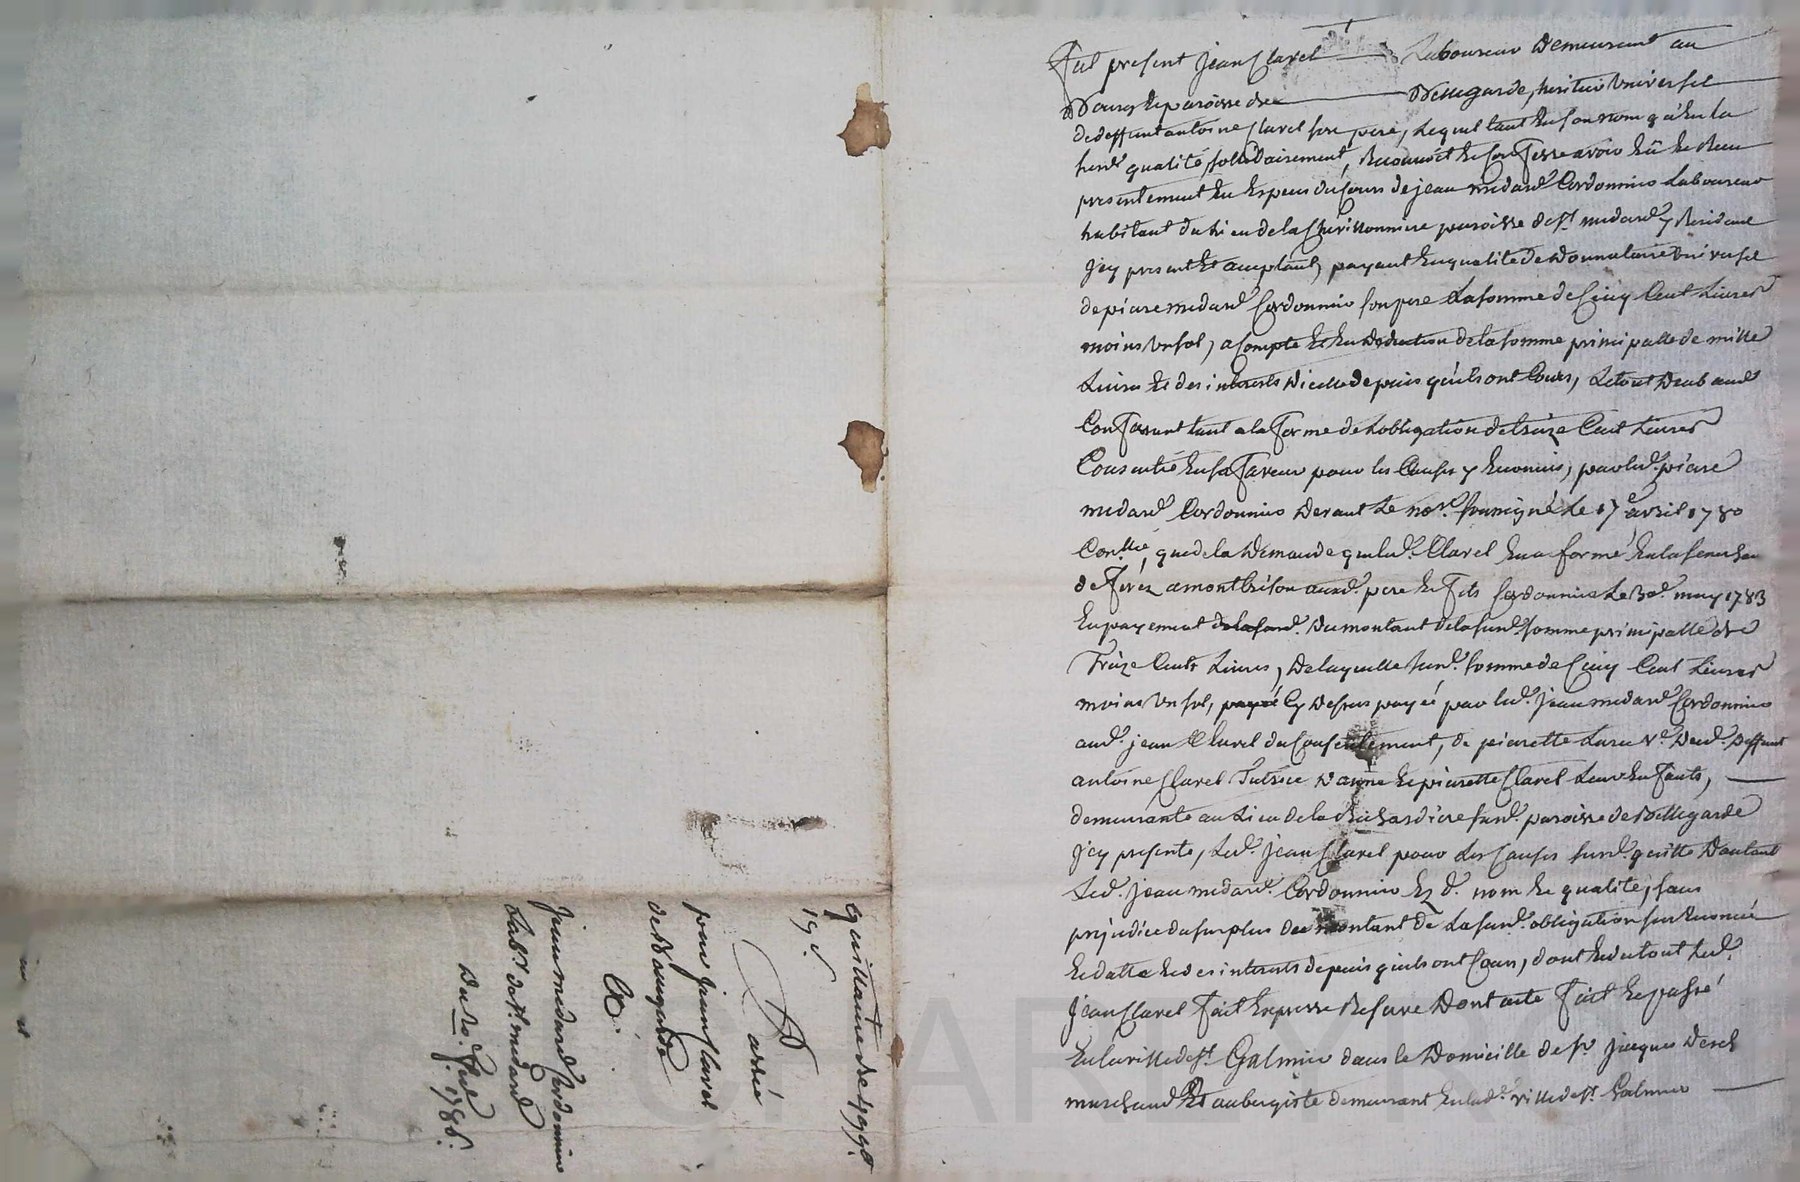 Fut present Jean Clavel Laboureur Demeurant au
Bourg & paroisse de Bellegarde, heritier Universel
de deffunt antoine Clavel son pere, Lequel tant En son nom qu'En la
susd.e qualité, sollidairement, Reconnoit & Confesse avoir Eû & Reçu
presentement En Especes du Cours de jean midard Cordonnier Laboureur
habitant du Lieu de la paroisse de st. midard y Residant
Jcy present Et acceptant, payant En qualité de Donnataire Universel
de piere midard Cordonnier son pere La somme de Cinq Cent Livres
moins Un sol, a Compte Et En Deduction de la somme principalle de mille
Livres & des interests D'icelle depuis qu'ils ont Cours, Le tout Deub aud.
Confessant tant a la forme de L'obligation de treize Cent Livres
Consentie En sa faveur pour les Causes y Enoncées, par led. piere
midard Cordonnier Devant Le no.re soussigné Le 17.e avril 1780
Con.llée que de la Demande que led. Clavel En a formé En la senechau
de forez a montbrison aux d. pere & fils Cordonnier Le 30.e may 1783
En payement de la sus.d. Du montant de la susd. somme principalle de
Treize Cents Livres, De laquelle susd. somme de Cinq Cent Livres
moins Un sol, payé Cy Dessus payéé par led. Jean midard Cordonnier
aud. jean Clavel du Consentement, de pierette v.e Dud. Deffunt
antoine Clavel Tutrice D'anne & pierette Clavel Leurs Enfants,
demeurante au Lieu de la susd. paroisse de Bellegarde
Jcy presente, Led. Jean Clavel pour Les Causes susd. quitte D'autant
Led. Jean midard Cordonnier Ez d. nom & qualité, sans
prejudice du surplus du montant de La susd. obligation sus Enoncée
& dattée & des interests depuis qu'ils ont Cours, dont & du tout Led.
Jean Clavel fait Expresse Reserve Dont acte fait & passé
En la ville de st. Galmier dans le Domicille de sr. Jacques
marchand Et aubergiste demeurant En lad. ville de st. Galmier
quittance de 499.tt
19 s.
passée
par Jean Clavel
de Bellegarde
A.
Jean midard Cordonnier
Lab.r de st. midard
Du 10. 1786.